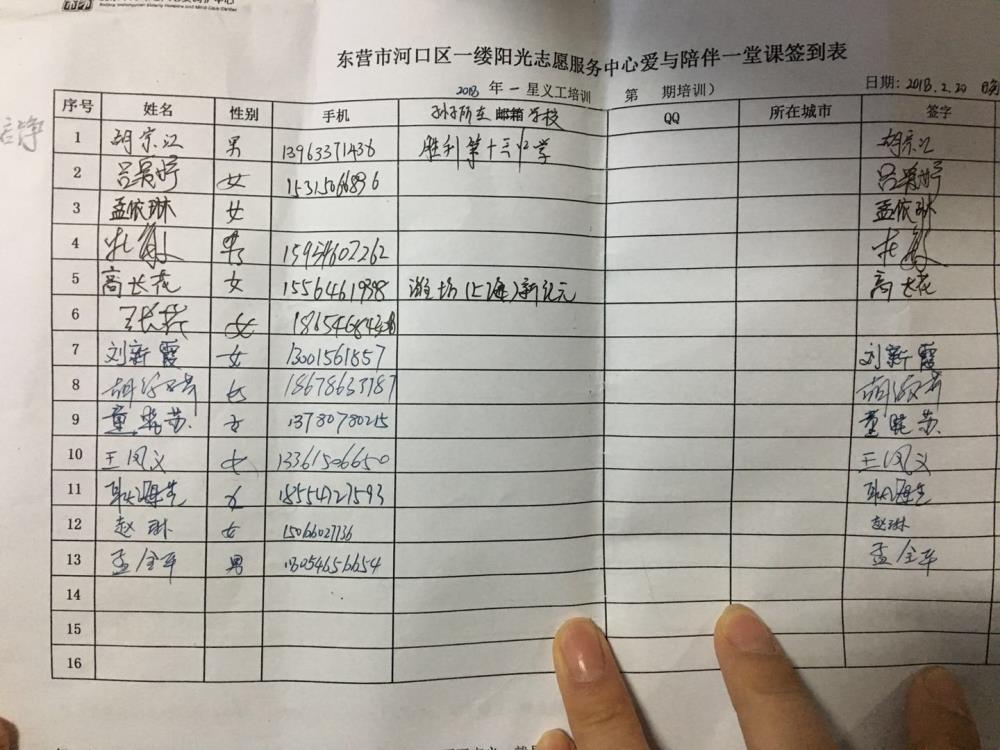 东营市河口区一缕阳光志愿服务中心爱与陪伴一堂课签到表
2018 年 一 星义工培训 第 期培训） 日期：2018.2.20
序号 姓名 性别 手机 孙子所在 邮箱 学校 QQ 所在城市 签字
1 胡宗江 男 13963371436 胜利第十三中学 胡宗江
2 女 女
3 孟依琳 女 孟依琳
4 男 15954602262
5 高长花 女 15564619398 潍坊(上海)新纪元 高长花
6 女
7 刘新霞 女 13001561857 刘新霞
8 女 18678633787
9 童晓苏 女 13780780215 童晓苏
10 王凤义 女 13361506650 王凤义
11 女 18554727593
12 赵琳 女 15066027736 赵琳
13 孟金平 男 13054656654 孟金平
14
15
16